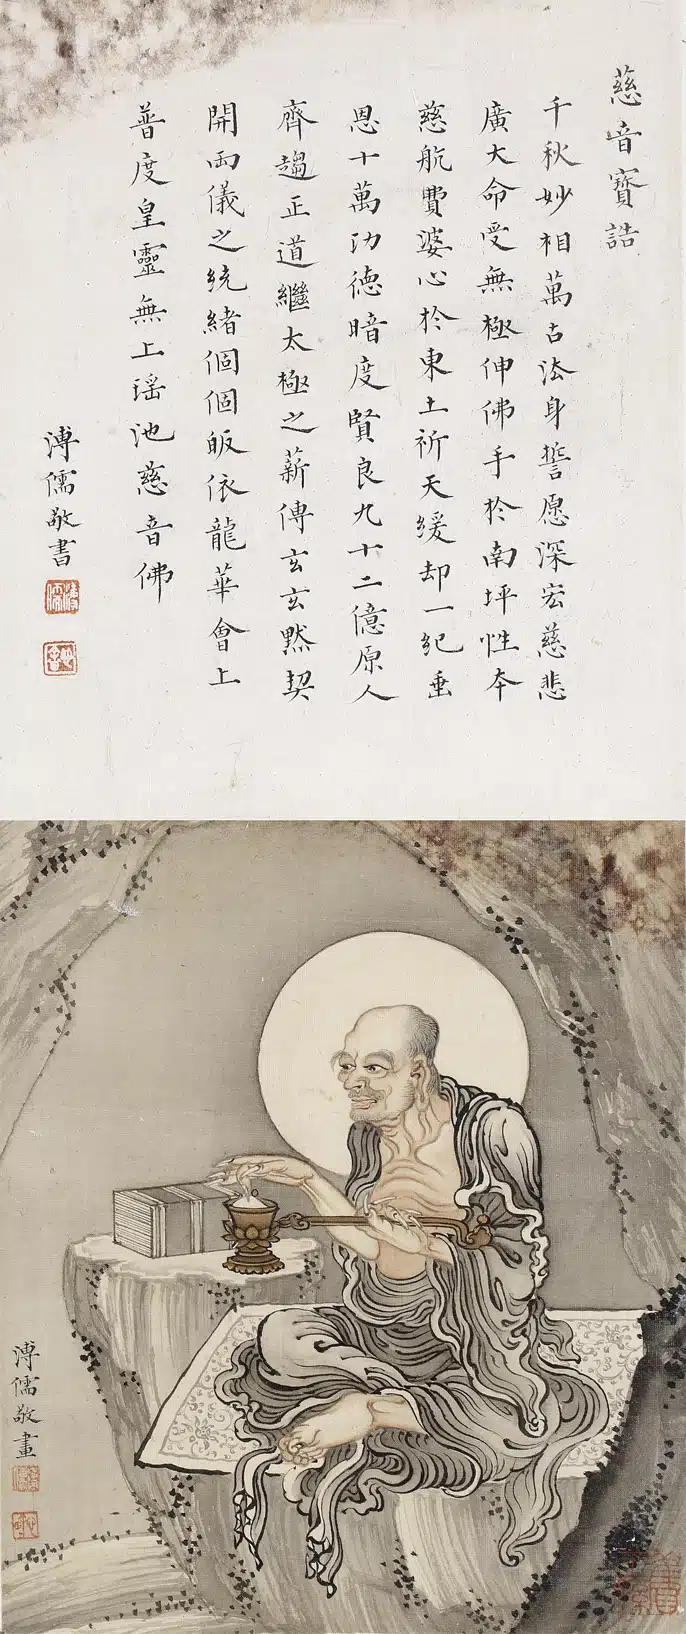 慈音寶誥
千秋妙相萬古法身誓愿深宏慈悲
廣大命受無極伸佛手於南坪性本
慈航費婆心於東土祈天緩却一紀垂
恩十萬功德暗度賢良九十二億原人
齊趨正道繼太極之薪傳玄玄黙契
開兩儀之統緒個個皈依龍華會上
普度皇靈無上瑶池慈音佛
溥儒敬書
溥儒
溥儒敬畫